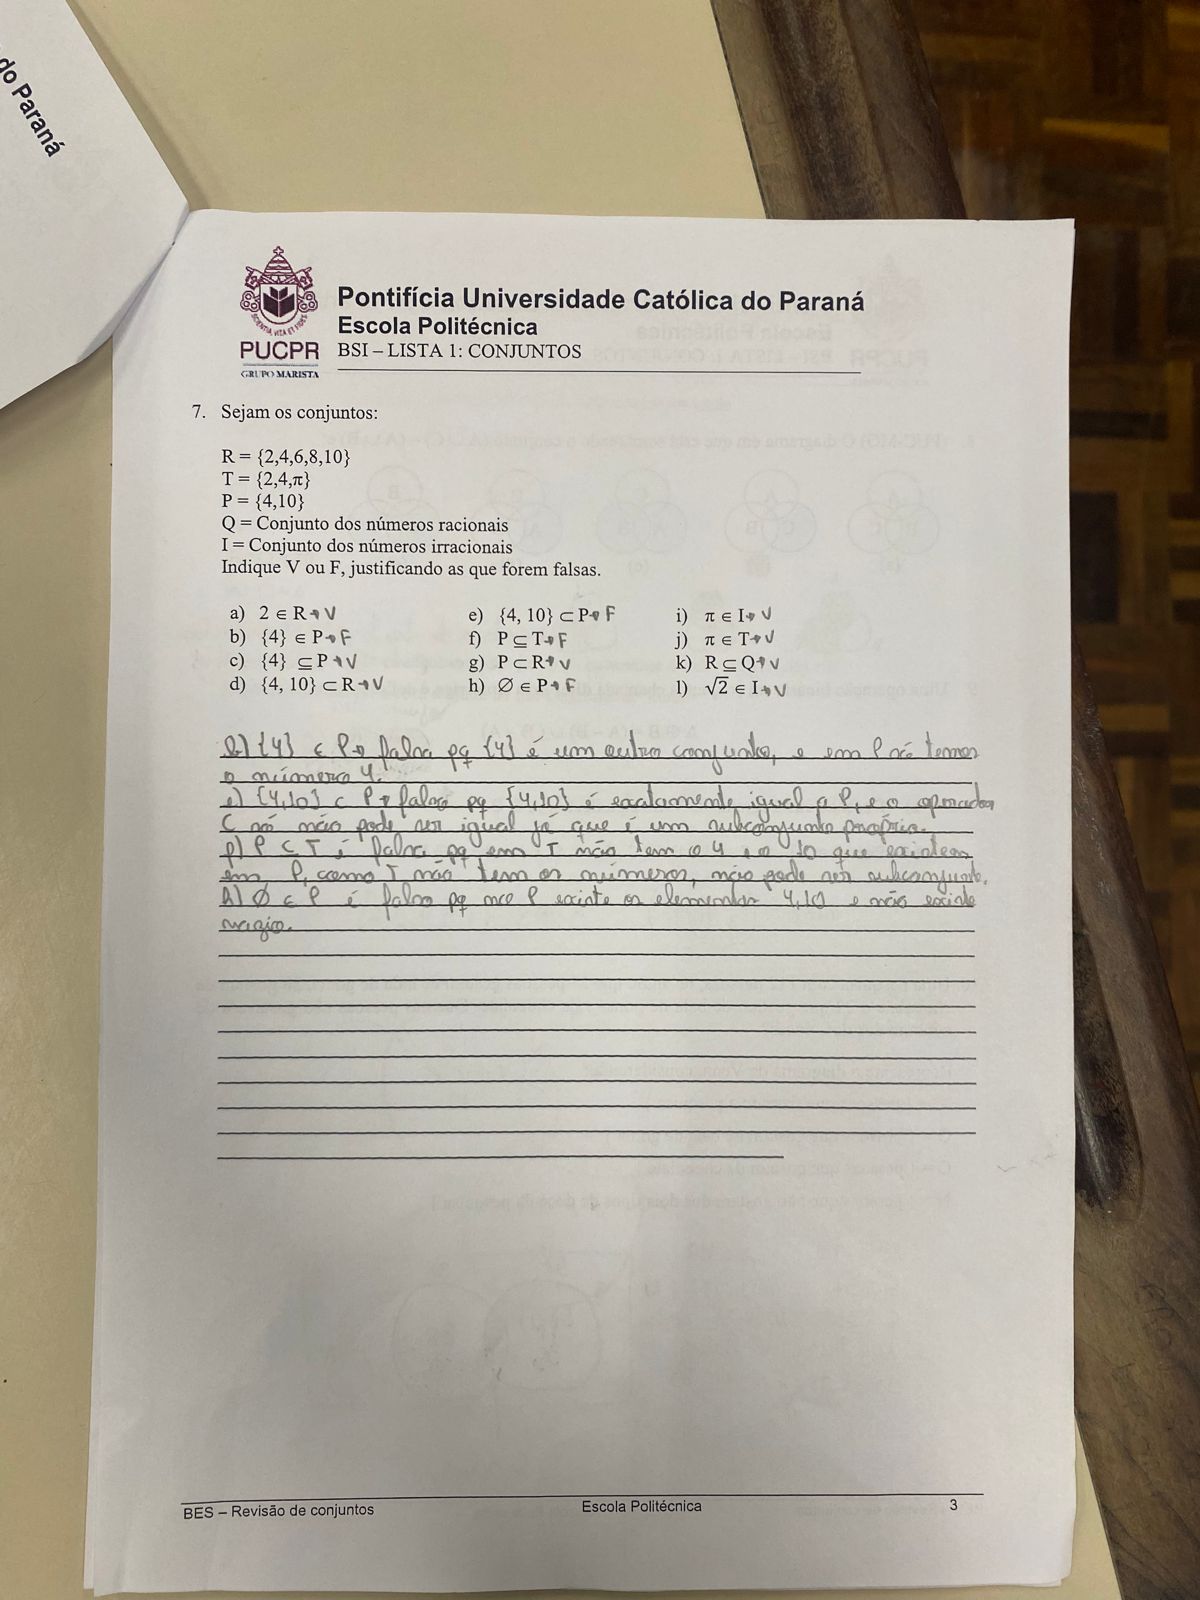 do Paraná
Pontifícia Universidade Católica do Paraná
Escola Politécnica
BSI – LISTA 1: CONJUNTOS
SCIENTIA, VITA ET FIDES
PUCPR
GRUPO MARISTA
7. Sejam os conjuntos:
R = {2,4,6,8,10}
T = {2,4,π}
P = {4,10}
Q = Conjunto dos números racionais
I = Conjunto dos números irracionais
Indique V ou F, justificando as que forem falsas.
a) 2 ∈ R → V
b) {4} ∈ P → F
c) {4} ⊆ P → V
d) {4, 10} ⊂ R → V
e) {4, 10} ⊂ P → F
f) P ⊆ T → F
g) P ⊂ R → V
h) ∅ ∈ P → F
i) π ∈ I → V
j) π ∈ T → V
k) R ⊆ Q → V
l) √2 ∈ I → V
b) {4} ∈ P → falsa pq {4} é um outro conjunto, e em P só temos
o número 4.
e) {4,10} ⊂ P → falso pq {4,10} é exatamente igual a P, e o operador
⊂ só não pode ser igual já que é um subconjunto próprio.
f) P ⊂ T é falsa pq em T não tem o 4 e o 10 que existem
em P, como T não tem os números, não pode ser subconjunto.
h) ∅ ∈ P é falso pq P existe os elementos 4,10 e não existe
vazio.
BES – Revisão de conjuntos
Escola Politécnica
3